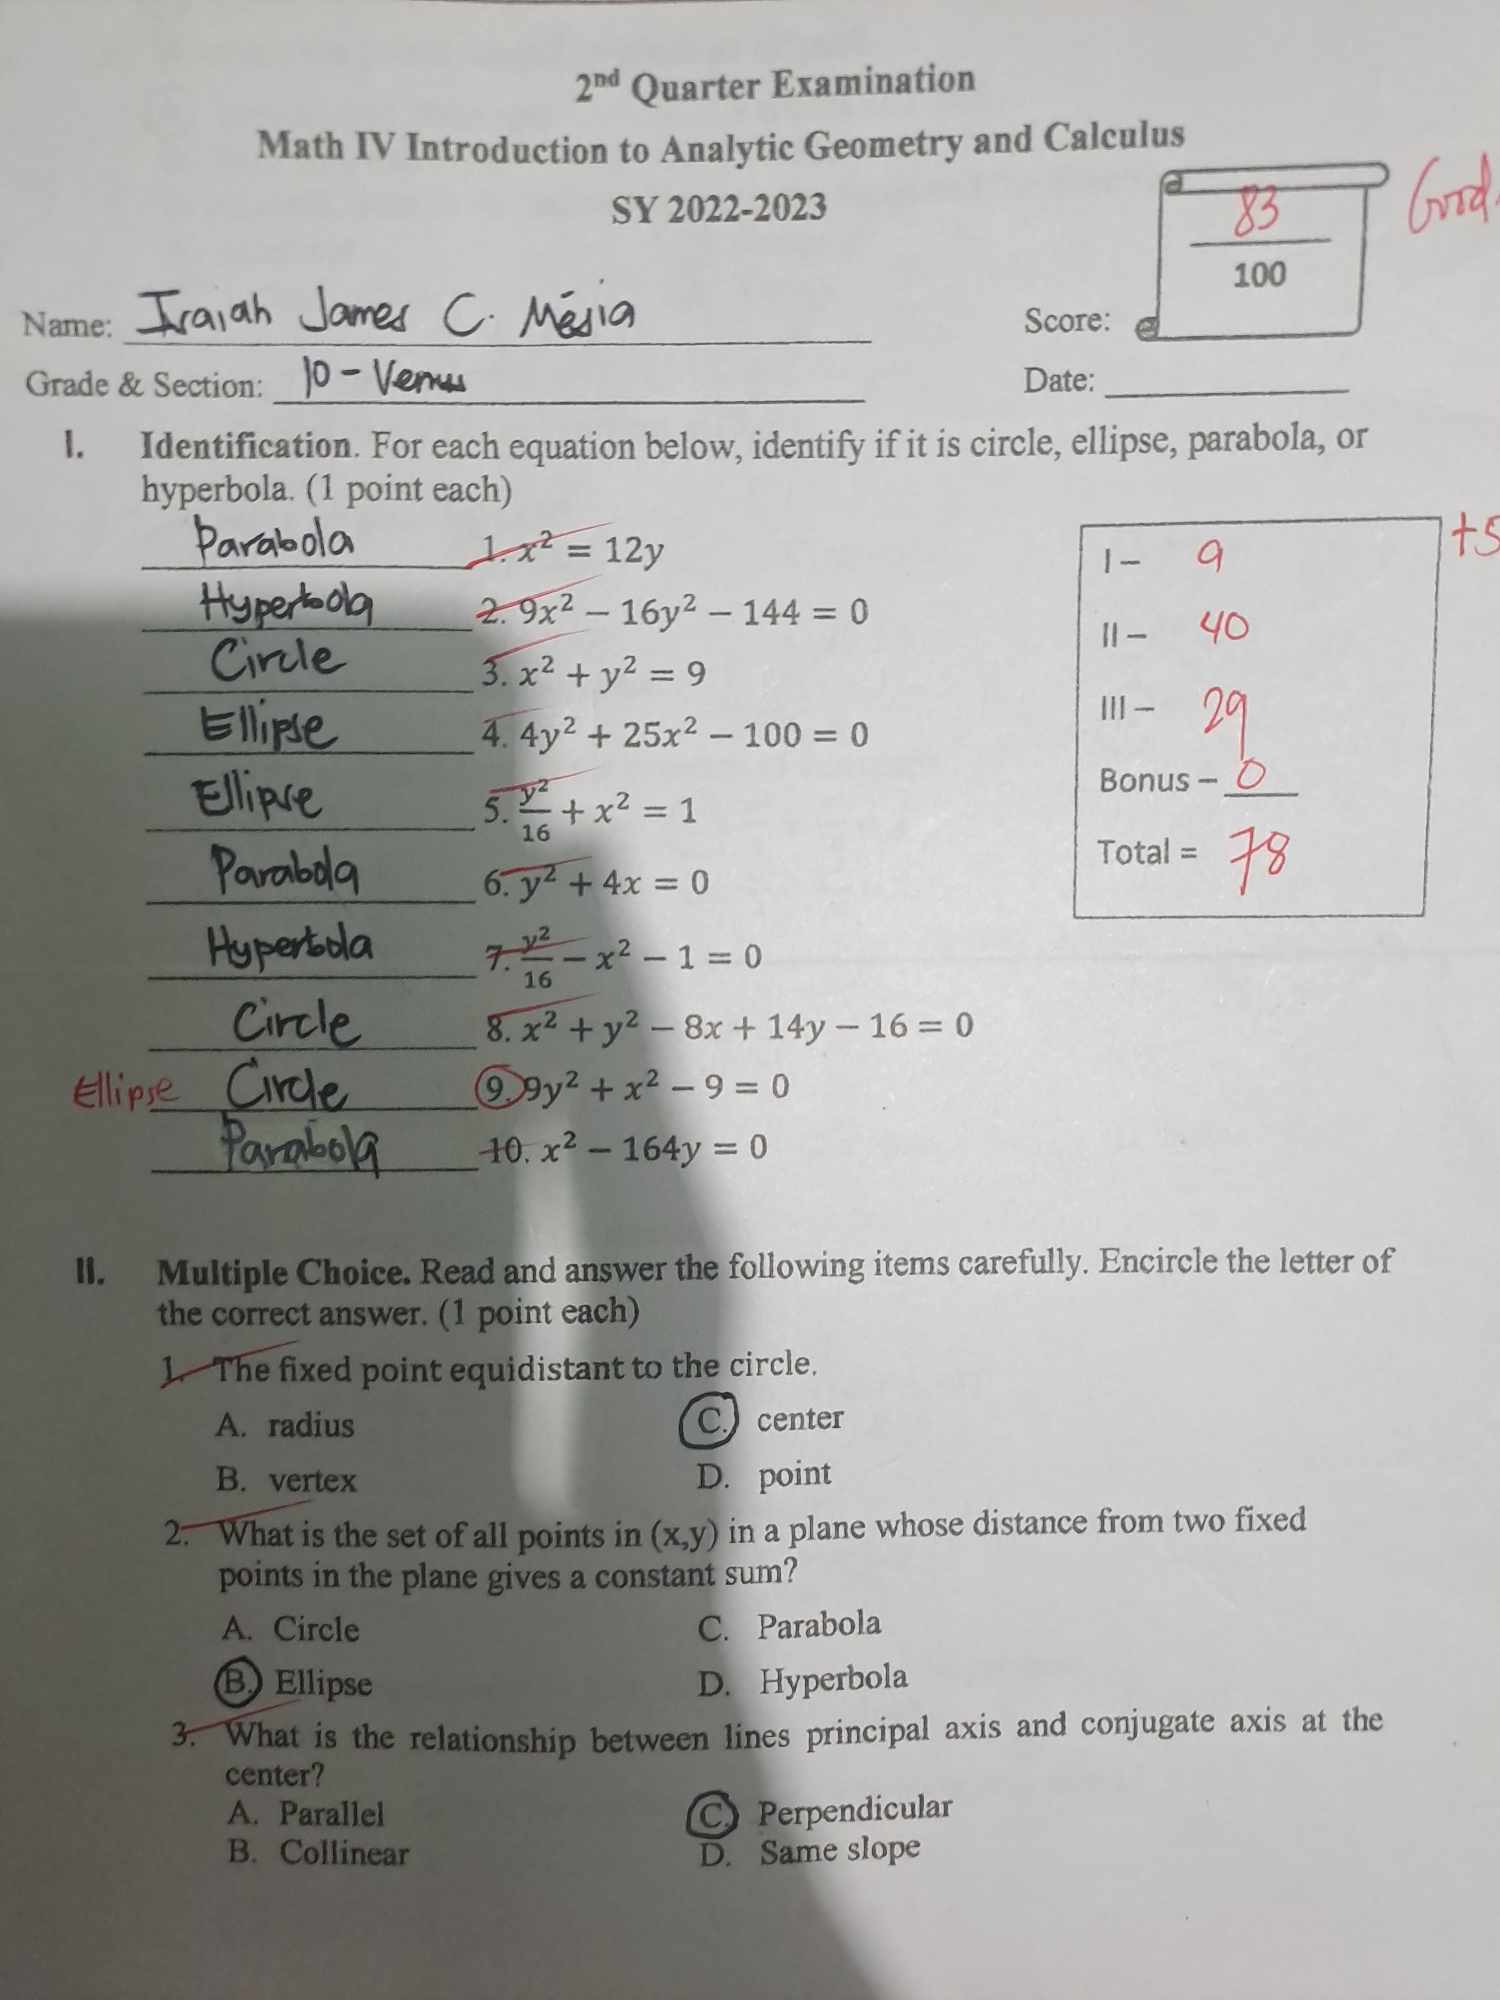 2nd Quarter Examination
Math IV Introduction to Analytic Geometry and Calculus
SY 2022-2023
83
100
Good
Name: Isaiah James C. Mesia
Score:
Grade & Section: 10 - Venus
Date:
I. Identification. For each equation below, identify if it is circle, ellipse, parabola, or
hyperbola. (1 point each)
Parabola 1. x² = 12y
Hyperbola 2. 9x² − 16y² − 144 = 0
Circle 3. x² + y² = 9
Ellipse 4. 4y² + 25x² − 100 = 0
Ellipse 5. y²/16 + x² = 1
Parabola 6. y² + 4x = 0
Hyperbola 7. y²/16 − x² − 1 = 0
Circle 8. x² + y² − 8x + 14y − 16 = 0
Ellipse Circle 9. 9y² + x² − 9 = 0
Parabola 10. x² − 164y = 0
I – 9
+5
II – 40
III – 29
Bonus – 0
Total = 78
II. Multiple Choice. Read and answer the following items carefully. Encircle the letter of
the correct answer. (1 point each)
1. The fixed point equidistant to the circle.
A. radius C. center
B. vertex D. point
2. What is the set of all points in (x,y) in a plane whose distance from two fixed
points in the plane gives a constant sum?
A. Circle C. Parabola
B. Ellipse D. Hyperbola
3. What is the relationship between lines principal axis and conjugate axis at the
center?
A. Parallel C. Perpendicular
B. Collinear D. Same slope